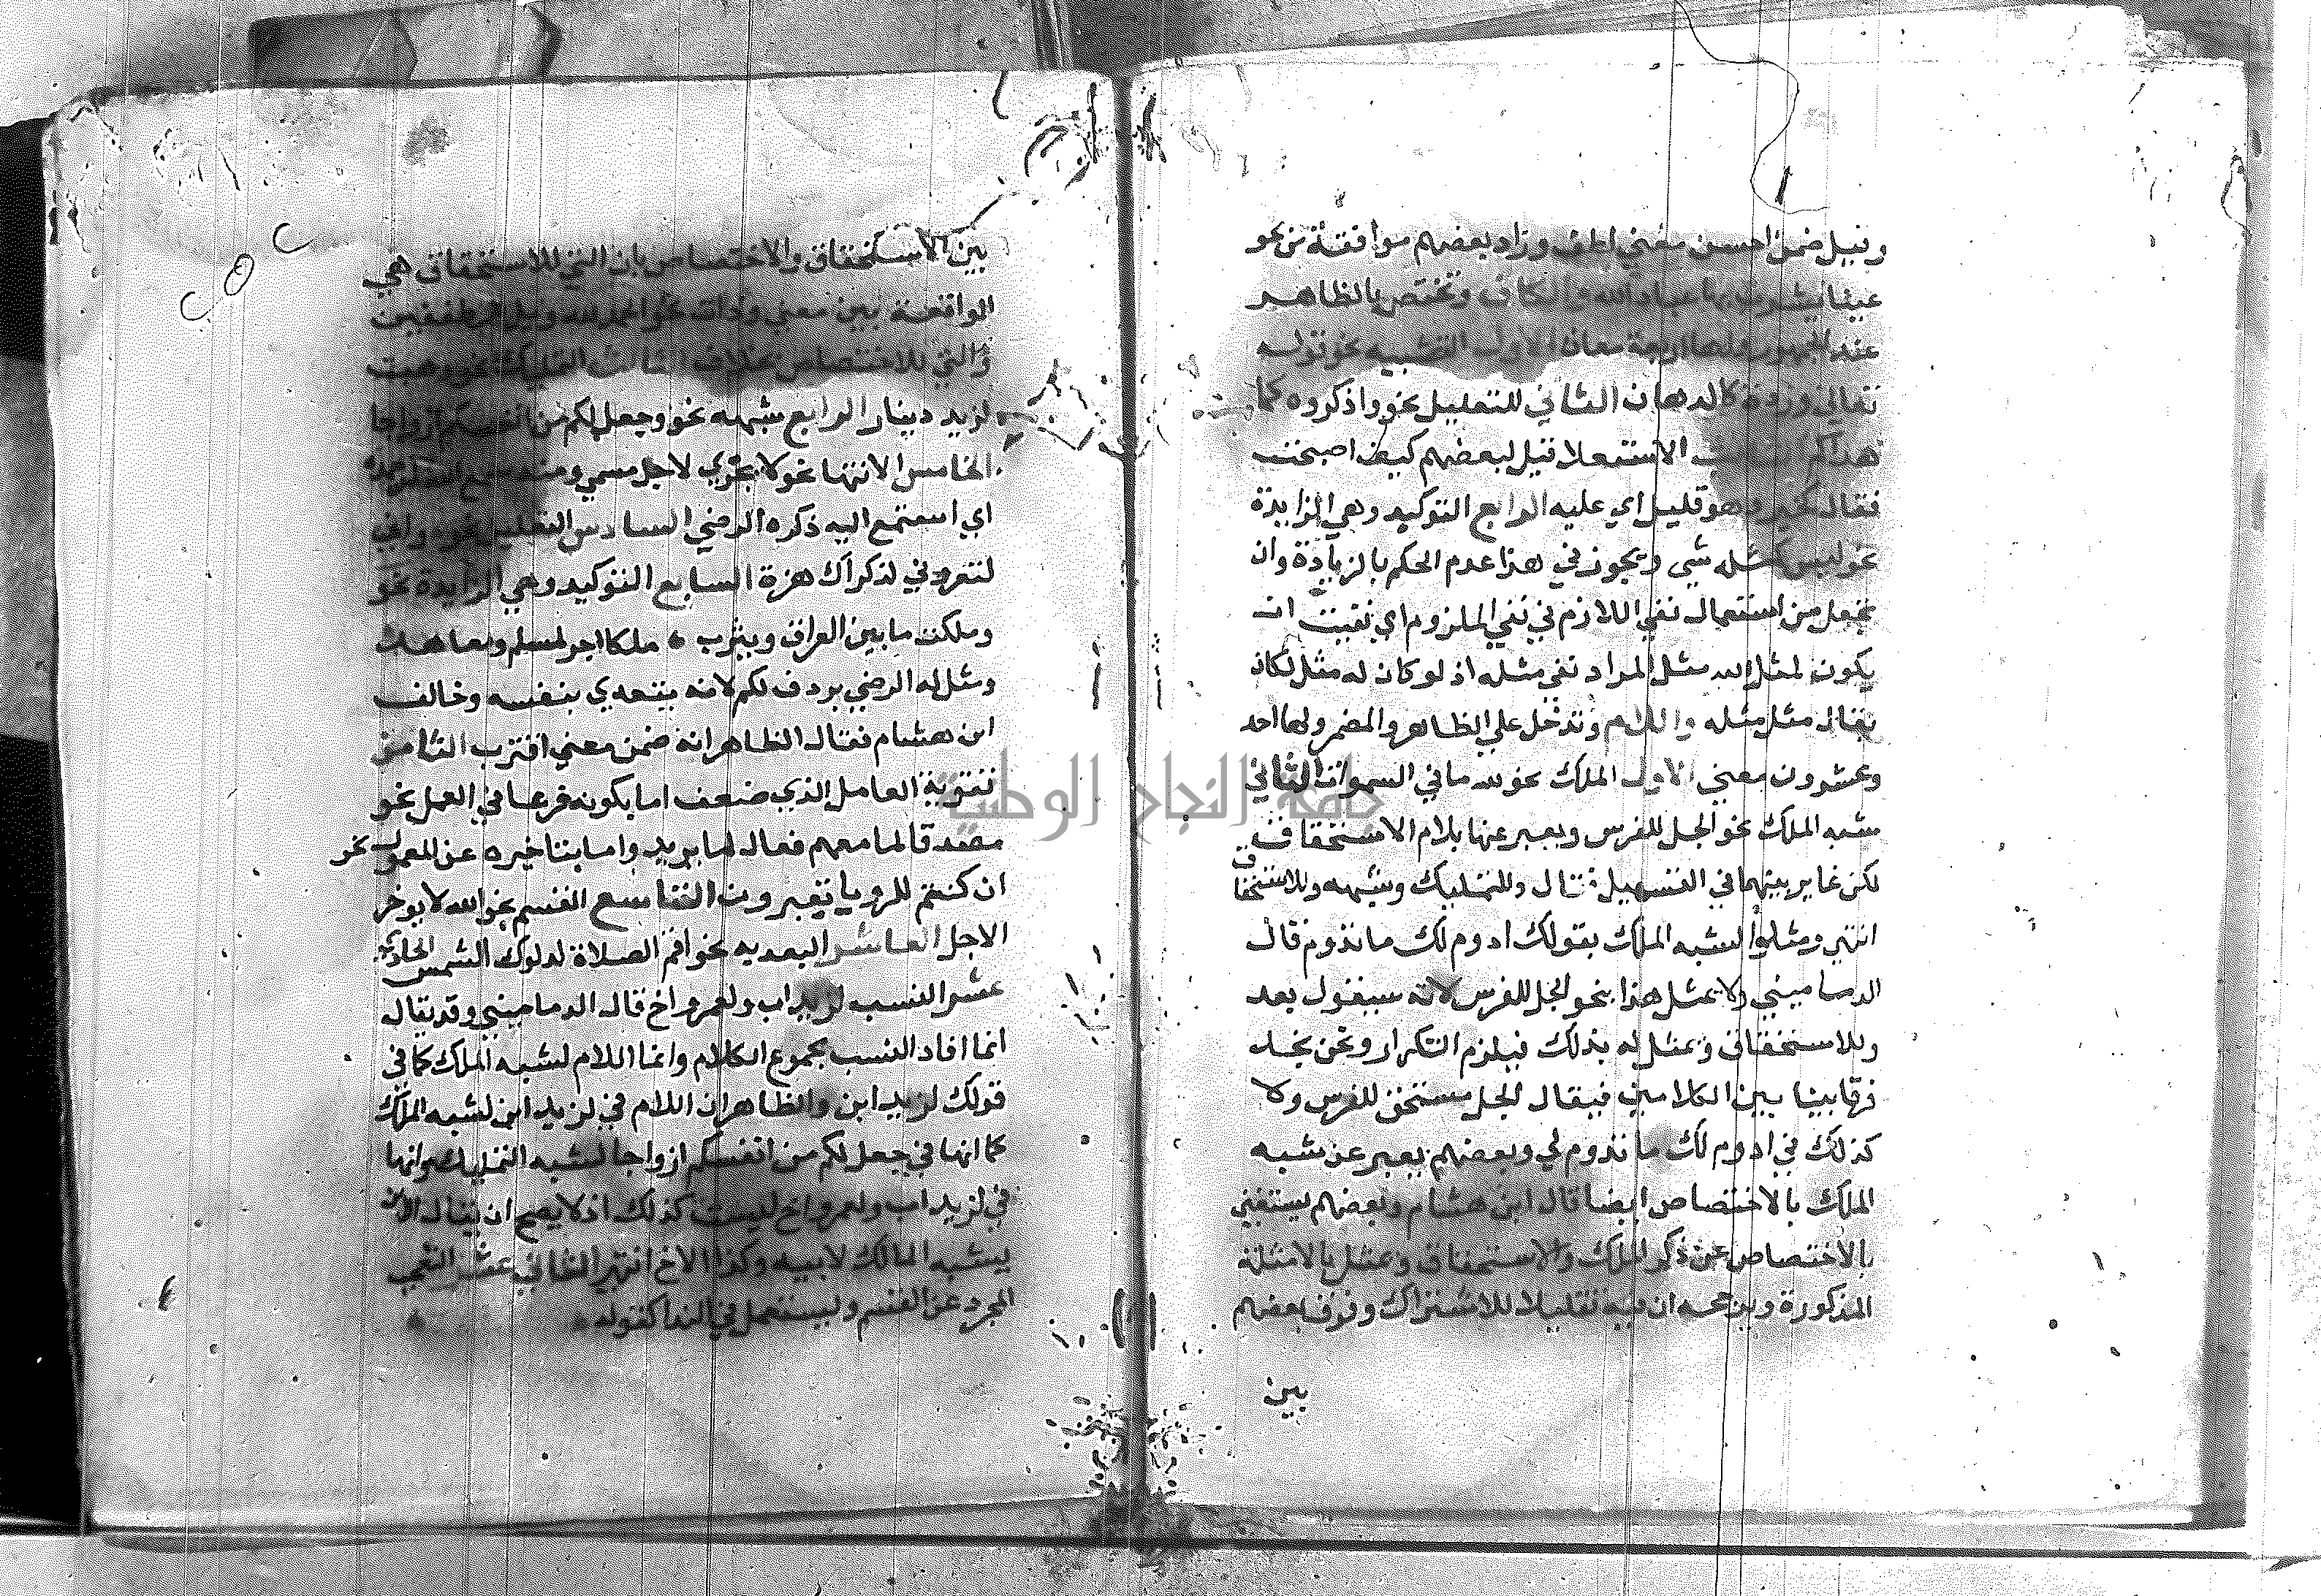 وقيل ضمن احسن معني لطف وزاد بعضهم موافقة من نحو
عينا يشرب بها عباد الله والكاف وتختص بالظاهر
عند الجمهور ولها اربعة معان الاول التشبيه نحو قوله
تعالي وردة كالدهان الثاني للتعليل نحو واذكروه كما
هداكم الثالث الاستعلا قيل لبعضهم كيف اصبحت
فقال كخير وهو قليل اي عليه الرابع التوكيد وهي الزايدة
نحو ليس كمثله شي ويجوز في هذا عدم الحكم بالزيادة وان
يجعل من استعمال نفي اللازم في نفي الملزوم اي نفيت ان
يكون لمثل الله مثل المراد نفي مثله اذ لو كان له مثل لكان
يقال مثل مثله واللام وتدخل علي الظاهر والمضمر ولها احد
وعشرون معني الاول الملك نحو لله ما في السموات الثاني
شبه الملك نحو الجل للفرس ويعبر عنها بلام الاستحقاق
لكن غاير بينهما في التسهيل فقال وللتمليك وشبهه وللاستحقاق
انتهي ومثلوا لشبه الملك بقولك ادوم لك ما تدوم قال
الدماميني ولا يمثل هذا بنحو الجل للفرس لانه سيقول بعد
وللاستحقاق ويمثل له بذلك فيلزم التكرار ونحن نجد
فرقا بينا بين الكلامين فيقال الجل مستحق للفرس ولا
كذلك في ادوم لك ما تدوم لي وبعضهم يعبر عن شبه
الملك بالاختصاص ايضا قال ابن هشام وبعضهم يستغني
بالاختصاص عن ذكر الملك والاستحقاق ويمثل بالامثلة
المذكورة ويرجحه ان فيه تقليلا للاشتراك وفرق بعضهم
بين
بين الاستحقاق والاختصاص بان التي للاستحقاق هي
الواقعة بين معني وذات نحو الحمد لله وويل للمطففين
والتي للاختصاص بخلاف الثالث التمليك نحو وهبت
لزيد دينار الرابع شبهه نحو وجعل لكم من انفسكم ازواجا
الخامس الانتها نحو كل يجري لاجل مسمي ومنه سمع الله لمن حمده
اي استمع اليه ذكره الرضي السادس التعليل نحو واني
لتعروني لذكراك هزة السابع التوكيد وهي الزايدة نحو
وملكت ما بين العراق ويثرب • ملكا اجر لمسلم ومعاهد
ومثل له الرضي بردف لكم لانه يتعدي بنفسه وخالف
ابن هشام فقال الظاهر انه ضمن معني اقترب الثامن
تقوية العامل الذي ضعف اما بكونه فرعا في العمل نحو
مصدقا لما معهم فعال لما يريد واما بتاخيره عن المعمول نحو
ان كنتم للرويا تعبرون التاسع القسم نحو لله لا يوخر
الاجل العاشر البعديه نحو اقم الصلاة لدلوك الشمس الحادي
عشر النسب لزيد اب ولعمرو اخ قال الدماميني وقد يقال
انما افاد النسب مجموع الكلام وانما اللام لشبه الملك كما في
قولك لزيد ابن والظاهر ان اللام في لزيد ابن لشبه الملك
كما انها في جعل لكم من انفسكم ازواجا لشبه التمليك وانها
في لزيد اب ولعمرو اخ ليست كذلك اذ لا يصح ان يقال الابن
يشبه المالك لابيه وكذا الاخ انتهي الثاني عشر التعجب
المجرد عن القسم ويستعمل في الندا كقوله
جامعة النجاح الوطنية